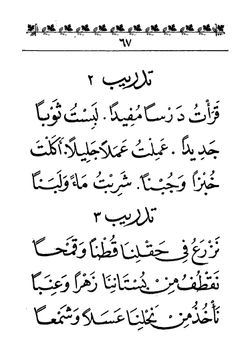 ٦٧
تدريب ٢
قَرَأْتُ دَرْسًا مُفِيدًا. لَبِسْتُ ثَوْبًا
جَدِيدًا. عَمِلْتُ عَمَلًا جَلِيلًا. أَكَلْتُ
خُبْزًا وَجُبْنًا. شَرِبْتُ مَاءً وَلَبَنًا
تدريب ٣
نَزْرَعُ فِي حَقْلِنَا قُطْنًا وَقَمْحًا
نَقْطُفُ مِنْ بُسْتَانِنَا زَهْرًا وَعِنَبًا
نَأْخُذُ مِنْ نَحْلِنَا عَسَلًا وَشَمْعًا